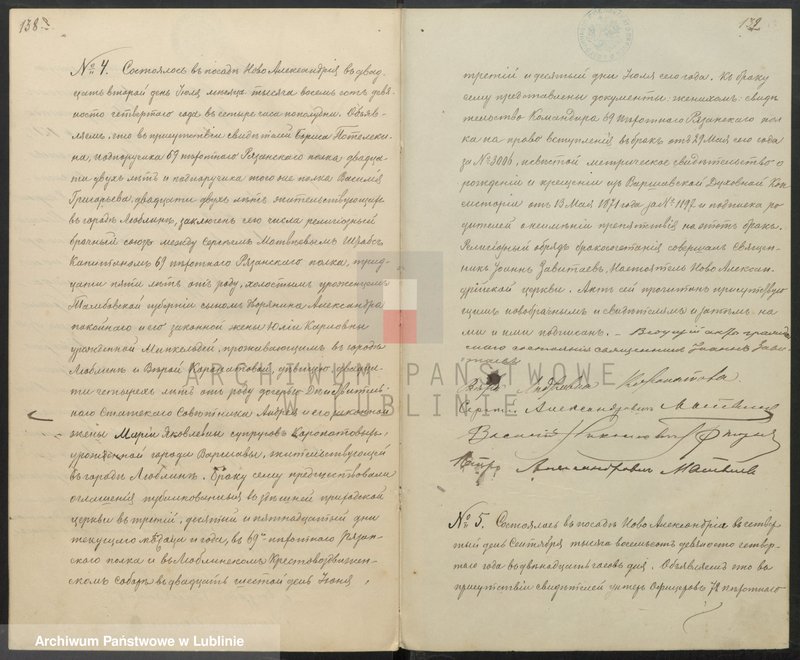 138
№ 4. Состоялось въ посадѣ Ново Александріи въ двад-
цать второй день Іюля мѣсяца тысяча восемь сотъ девя-
носто четвертаго года въ четыре часа пополудни. Объяв-
ляемъ, что въ присутствіи свидѣтелей Бориса
подпоручика 69 пѣхотнаго Рязанскаго полка, двадца-
ти двухъ лѣтъ и подпоручика того же полка Василія
Григорьева, двадцати двухъ лѣтъ жительствующихъ
въ городѣ Люблинѣ, заключенъ сего числа религіозный
брачный союзъ между Сергѣемъ Матвѣевымъ Штабсъ
Капитаномъ 69 пѣхотнаго Рязанскаго полка, трид-
цати пяти лѣтъ отъ роду, холостымъ уроженцемъ
Тамбовской губерніи сыномъ Дворянина Александра
покойнаго и его законной жены Юліи Карловны
урожденной проживающимъ въ городѣ
Люблинѣ и Вѣрой Каропатовой, дѣвицею, двадца-
ти четырехъ лѣтъ отъ роду дочерью Дѣйствитель-
наго Статскаго Совѣтника Андрея и его законной
жены Маріи Яковлевны супруговъ Каропатовыхъ
урожденной города Варшавы, жительствующей
въ городѣ Люблинѣ. Браку сему предшествовали
оглашенія публикованныя въ здѣшней приходской
церкви въ третій, десятый и пятнадцатый дни
текущаго мѣсяца и года, въ 69мъ пѣхотнаго Рязан-
скаго полка и въ Люблинскомъ Крестовоздвижен-
скомъ Соборѣ въ двадцать шестой день Іюня,
139
третій и десятый дни Іюля сего года. Къ браку
сему представлены документы: женихомъ: свидѣ-
тельство Командира 69 пѣхотнаго Рязанскаго пол-
ка на право вступленія въ бракъ отъ 29 Мая сего года
за № 3006, невѣстой метрическое свидѣтельство о
рожденіи и крещеніи изъ Варшавской Духовной Кон-
систоріи отъ 13 Мая 1871 года за № 1192 и подписка ро-
дителей о неимѣніи препятствій на этотъ бракъ.
Религіозный обрядъ бракосочетанія совершалъ Священ-
никъ Іоаннъ Настоятель Ново Алексан-
дрійской церкви. Актъ сей прочитанъ присутствую-
щимъ новобрачнымъ и свидѣтелямъ и затѣмъ на-
ми и ими подписанъ. – Ведущій акты граждан-
скаго состоянія священникъ Іоаннъ
Вѣра Андреевна Коропатова
Сергѣй Александровичъ Матвѣевъ
Василій
Петръ Александровичъ Матвѣевъ
№ 5. Состоялось въ посадѣ Ново Александріи въ четвер-
тый день Сентября тысяча восемьсотъ девяносто четвер-
таго года въ двѣнадцать часовъ дня. Объявляемъ что въ
присутствіи свидѣтелей унтеръ Офицеровъ 72 пѣхотнаго
ARCHIWUM PAŃSTWOWE
W LUBLINIE
Archiwum Państwowe w Lublinie